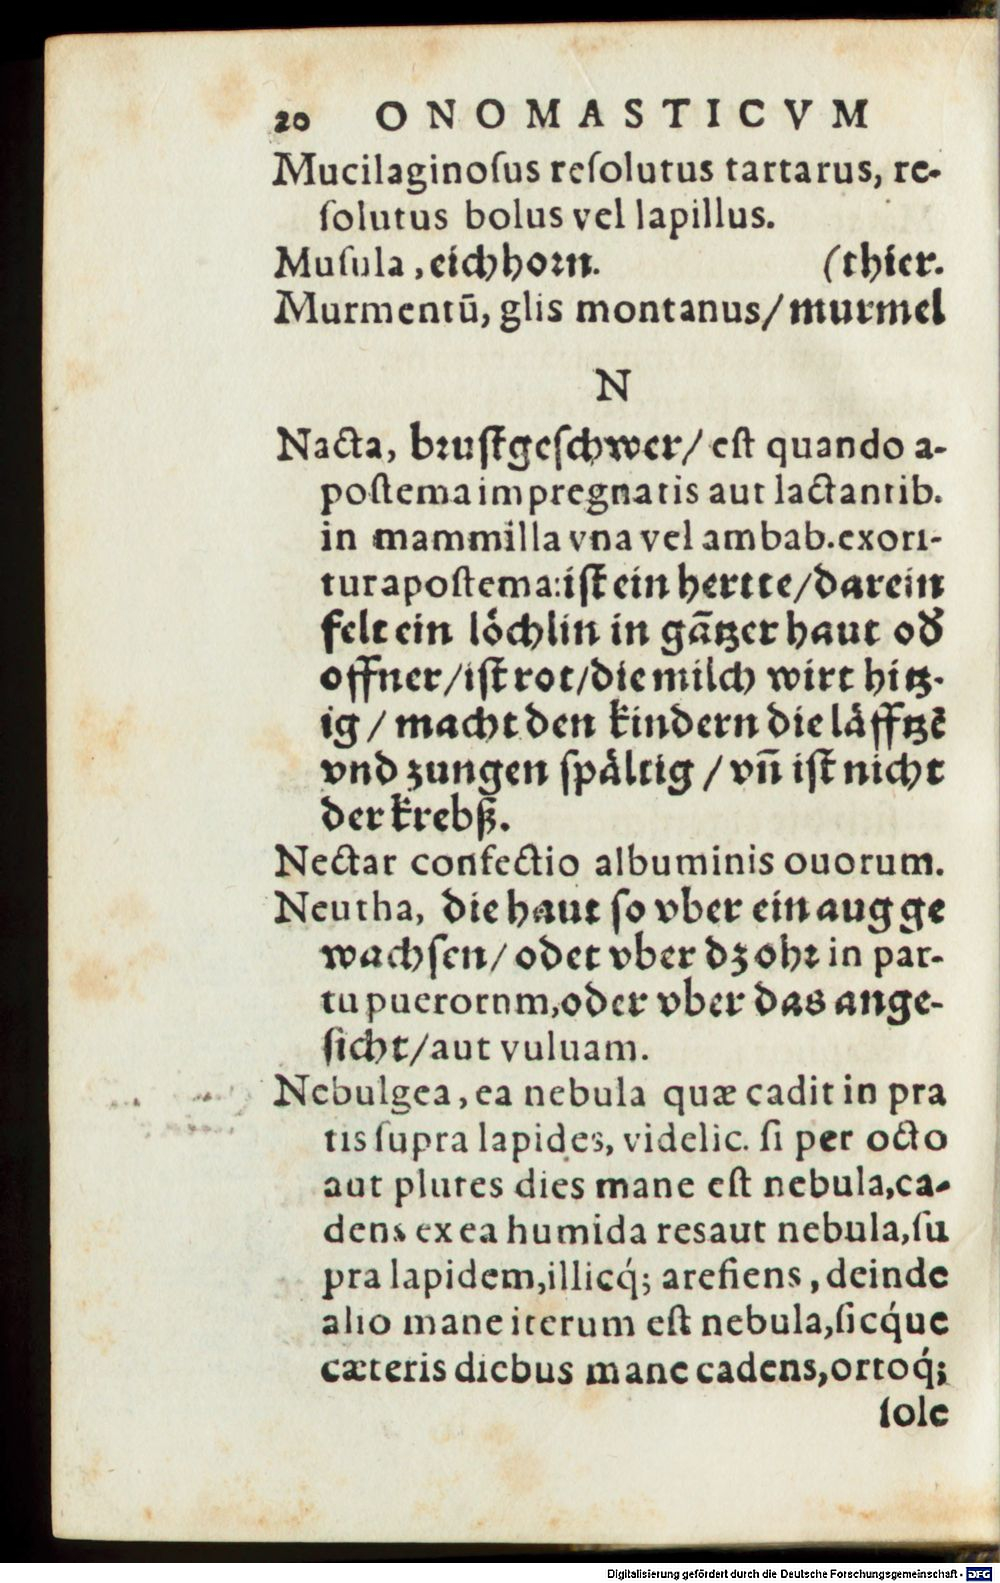 20 ONOMASTICVM
Mucilaginoſus reſolutus tartarus, re-
ſolutus bolus vel lapillus.
Muſula, eichhorn. (thier.
Murmentū, glis montanus/murmel
N
Nacta, bruſtgeſchwer/ eſt quando a-
poſtema impregnatis aut lactantib.
in mammilla vna vel ambab. exori-
tur apoſtema: iſt ein hertte/darein
felt ein löchlin in gātzer haut oď
offner/iſt rot/die milch wirt hitz-
ig/ macht den kindern die läfftzē
vnd zungen ſpältig/ vñ iſt nicht
der krebß.
Nectar confectio albuminis ouorum.
Neutha, die haut ſo vber ein aug ge
wachſen/ odet vber dz ohr in par-
tu puerornm, oder vber das ange-
ſicht/aut vuluam.
Nebulgea, ea nebula quæ cadit in pra
tis ſupra lapides, videlic. ſi per octo
aut plures dies mane eſt nebula, ca-
dens ex ea humida resaut nebula, ſu
pra lapidem, illicq́; areſiens, deinde
alio mane iterum eſt nebula, ſicq́ue
cæteris diebus mane cadens, ortoq́;
ſole
Digitalisierung gefördert durch die Deutsche Forschungsgemeinschaft - DFG